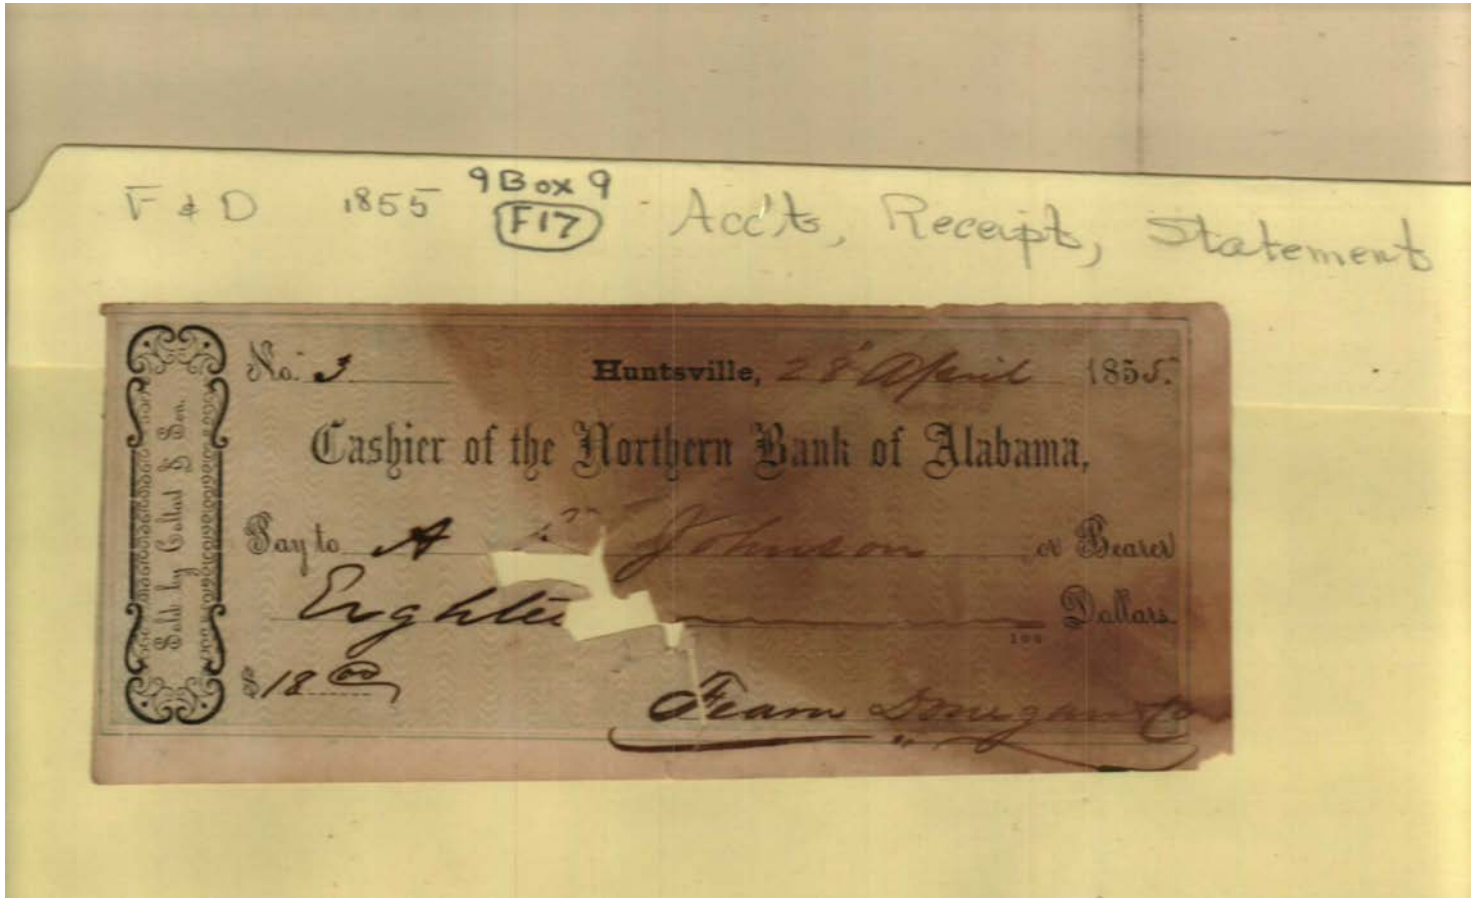 F & D 1855 9 Box 9 Acc'ts, Receipt, Statement
F17
Sold by Coltart & Son.
No. 3 Huntsville, 28 April 1855.
Cashier of the Northern Bank of Alabama,
Pay to A Johnson or Bearer
Eightee Dollars
100
$18 00
Fearn Donegan & Co